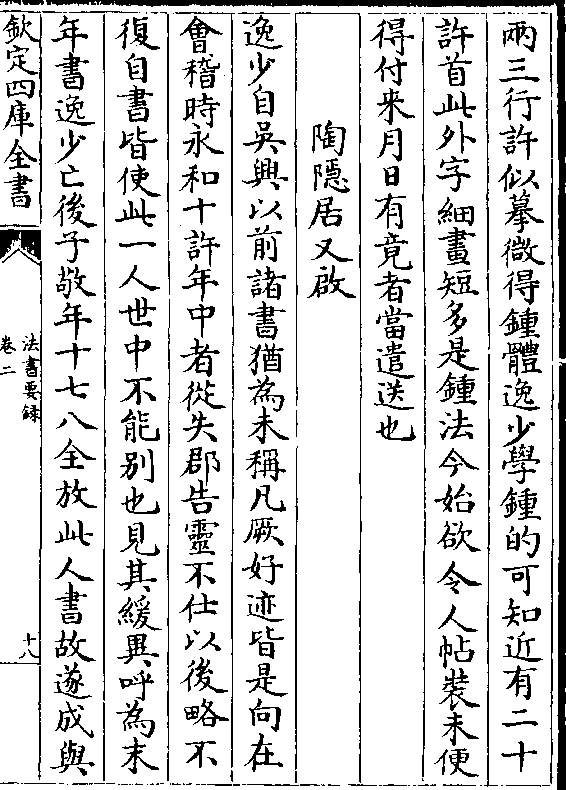 兩三行許似摹微得鍾體逸少學鍾的可知近有二十
許首此外字細畫短多是鍾法今始欲令人帖裝未便
得付來月日有竟者當遣送也
陶隱居又啟
逸少自吳興以前諸書猶為未稱凡厥好迹皆是向在
會稽時永和十許年中者從失郡告靈不仕以後略不
復自書皆使此一人世中不能别也見其緩異呼為末
年書逸少亡後子敬年十七八全放此人書故遂成與
欽定四庫全書
法書要録
卷二
十八